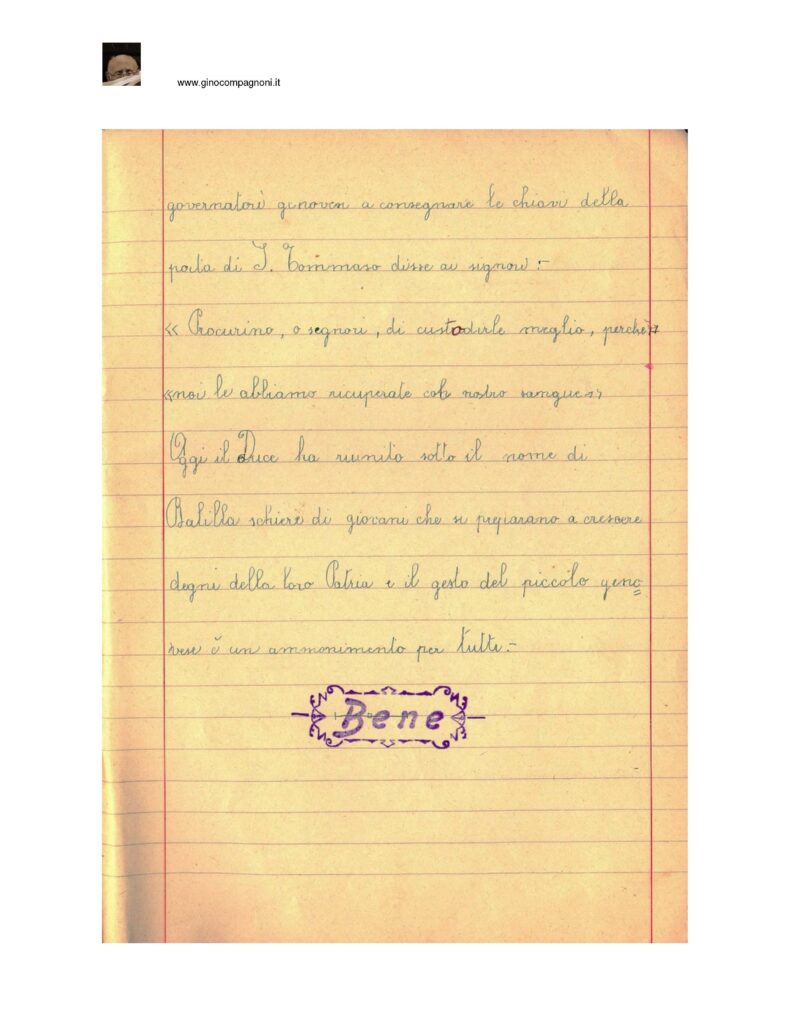 www.ginocompagnoni.it
governatori genovesi a consegnare le chiavi della
porta di S. Tommaso disse ai signori:-
« Procurino, o segnori, di custodirle meglio, perchè»
«noi le abbiamo ricuperate col nostro sangue»
Oggi il Duce ha riunito sotto il nome di
Balilla schiere di giovani che si preparano a crescere
degni della loro Patria e il gesto del piccolo geno
vese è un ammonimento per tutti.-
Bene